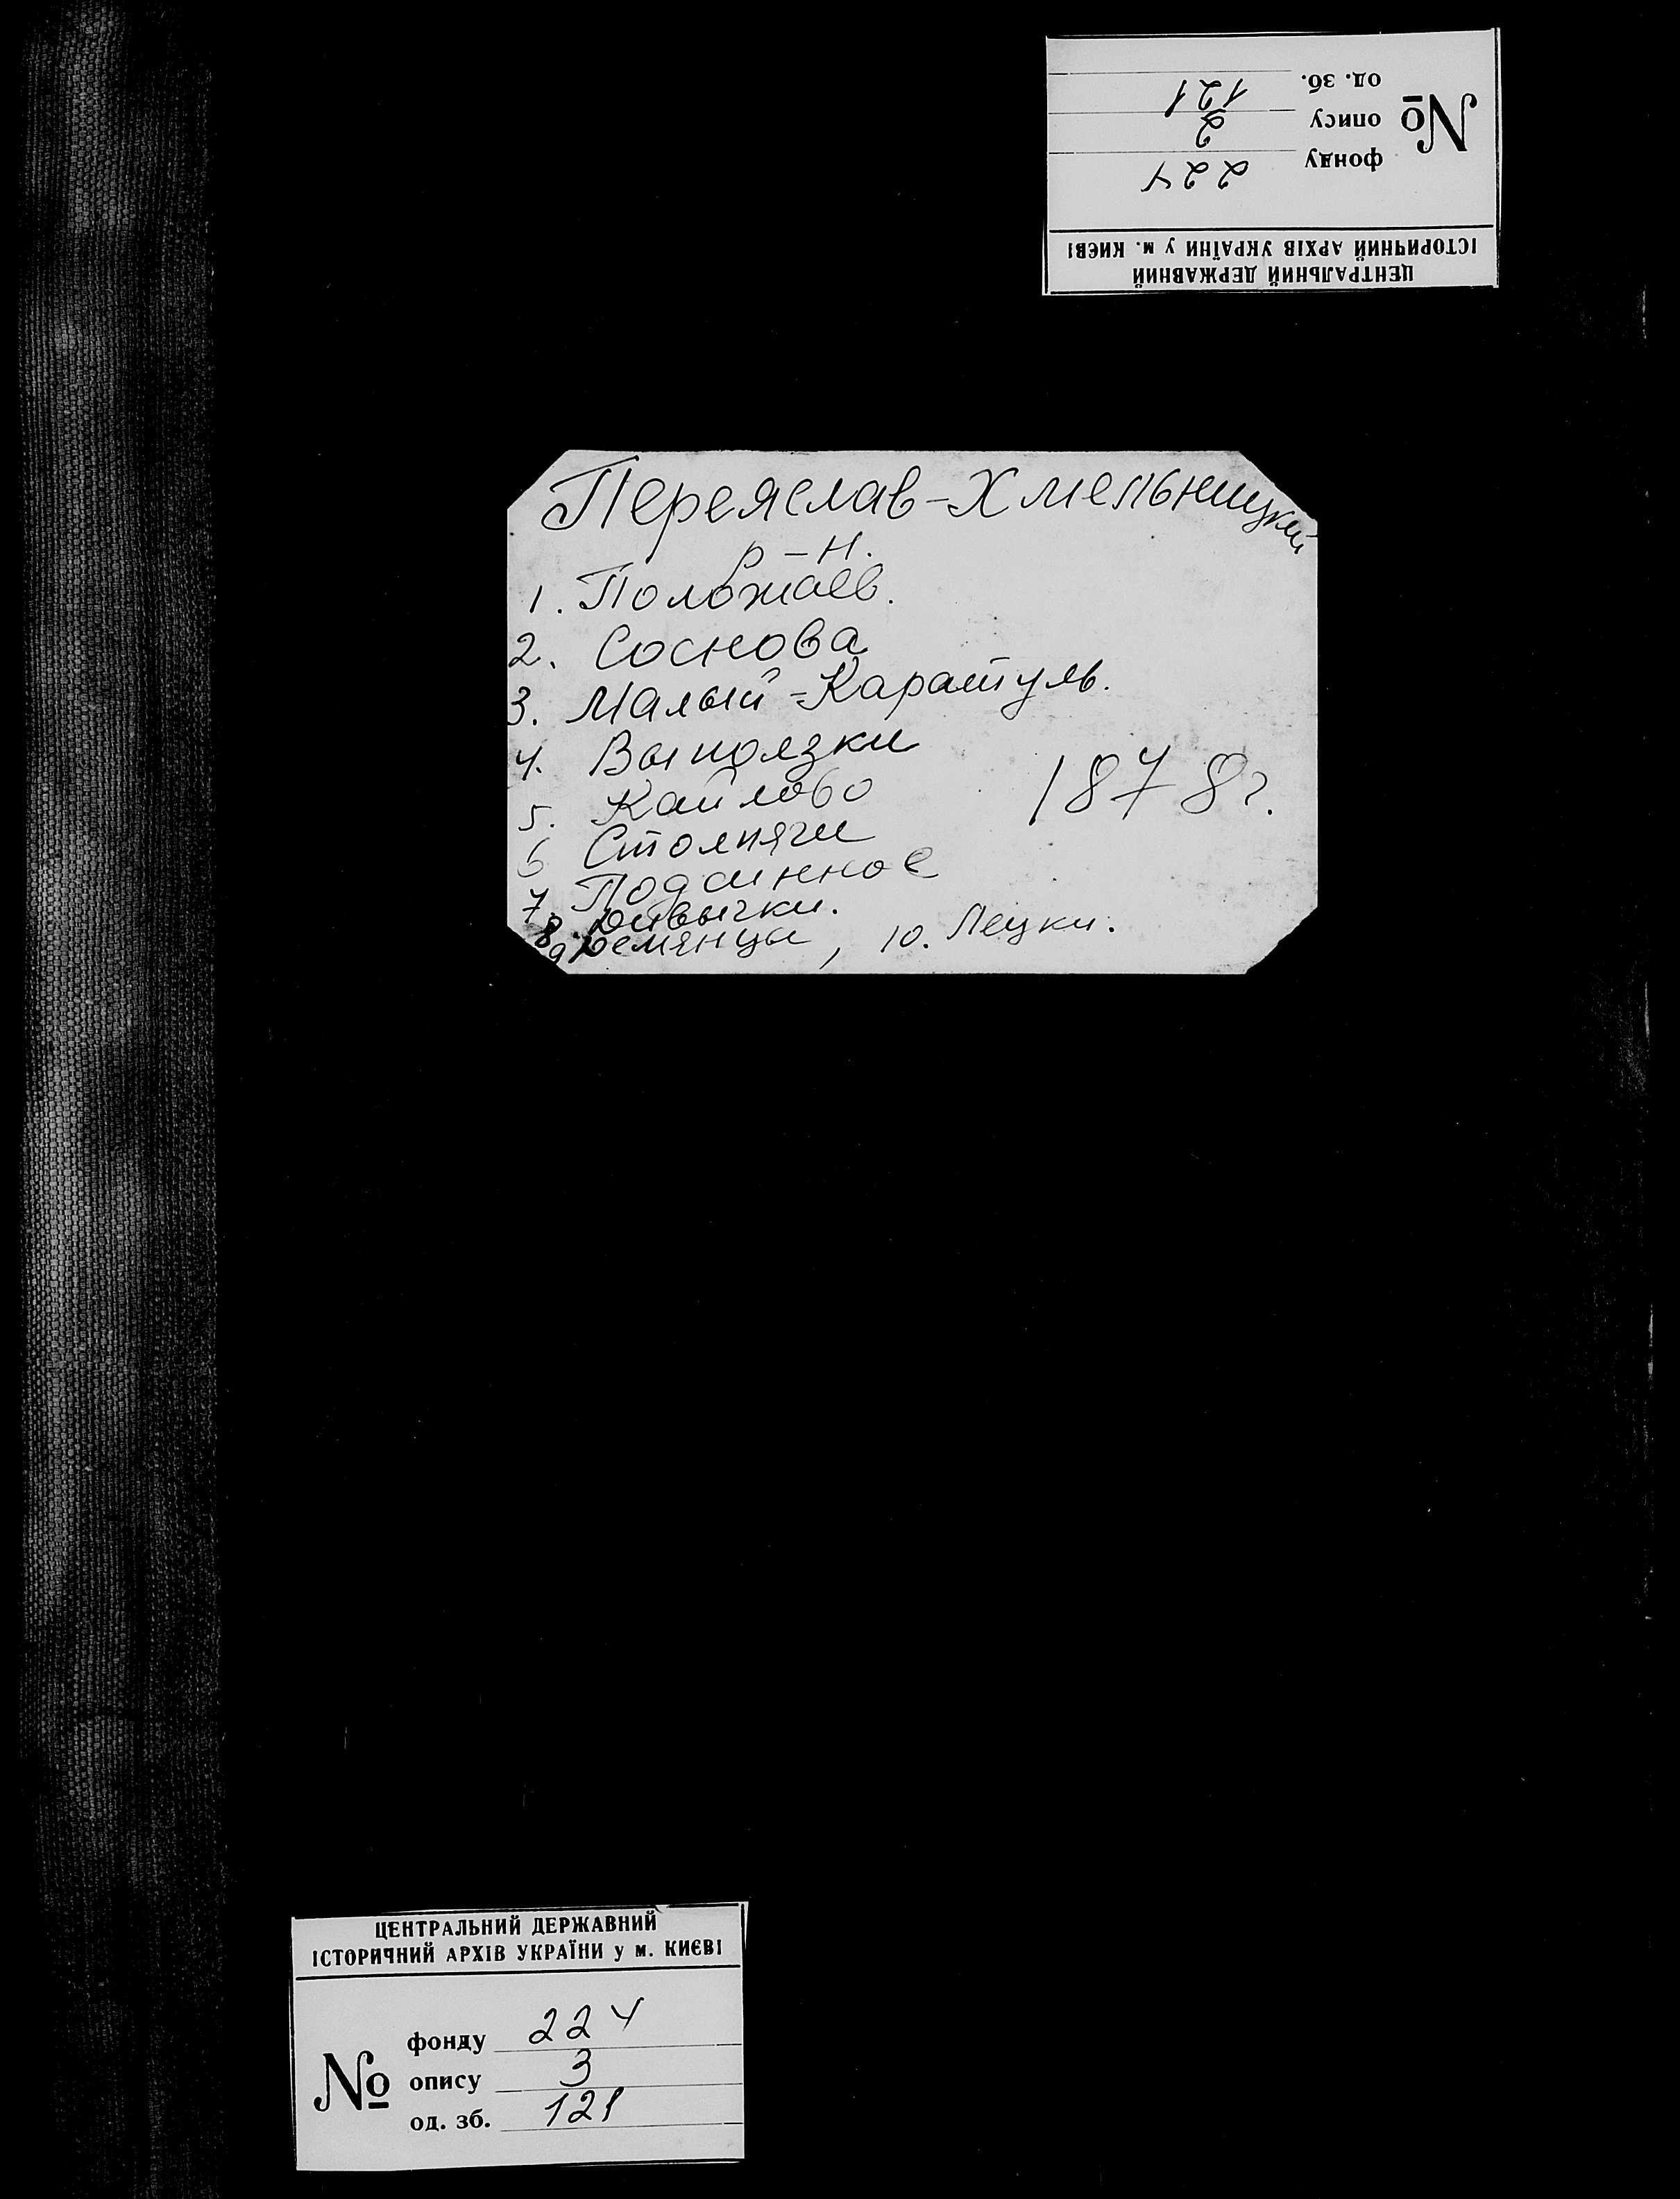 ЦЕНТРАЛЬНИЙ ДЕРЖАВНИЙ
ІСТОРИЧНИЙ АРХІВ УКРАЇНИ у м. КИЄВІ
№
фонду 224
опису 2
од. зб. 121
Переяслав-Хмельницкий
р-н.
1. Положаев.
2. Соснова
3. Малый-Каратуль.
4. Выползки
5. Кайлово
6 Столпяги
7. Подсинное
8. Дивычки.
9 Демянцы, 10. Лецки.
1878г.
ЦЕНТРАЛЬНИЙ ДЕРЖАВНИЙ
ІСТОРИЧНИЙ АРХІВ УКРАЇНИ у м. КИЄВІ
№
фонду 224
опису 3
од. зб. 121